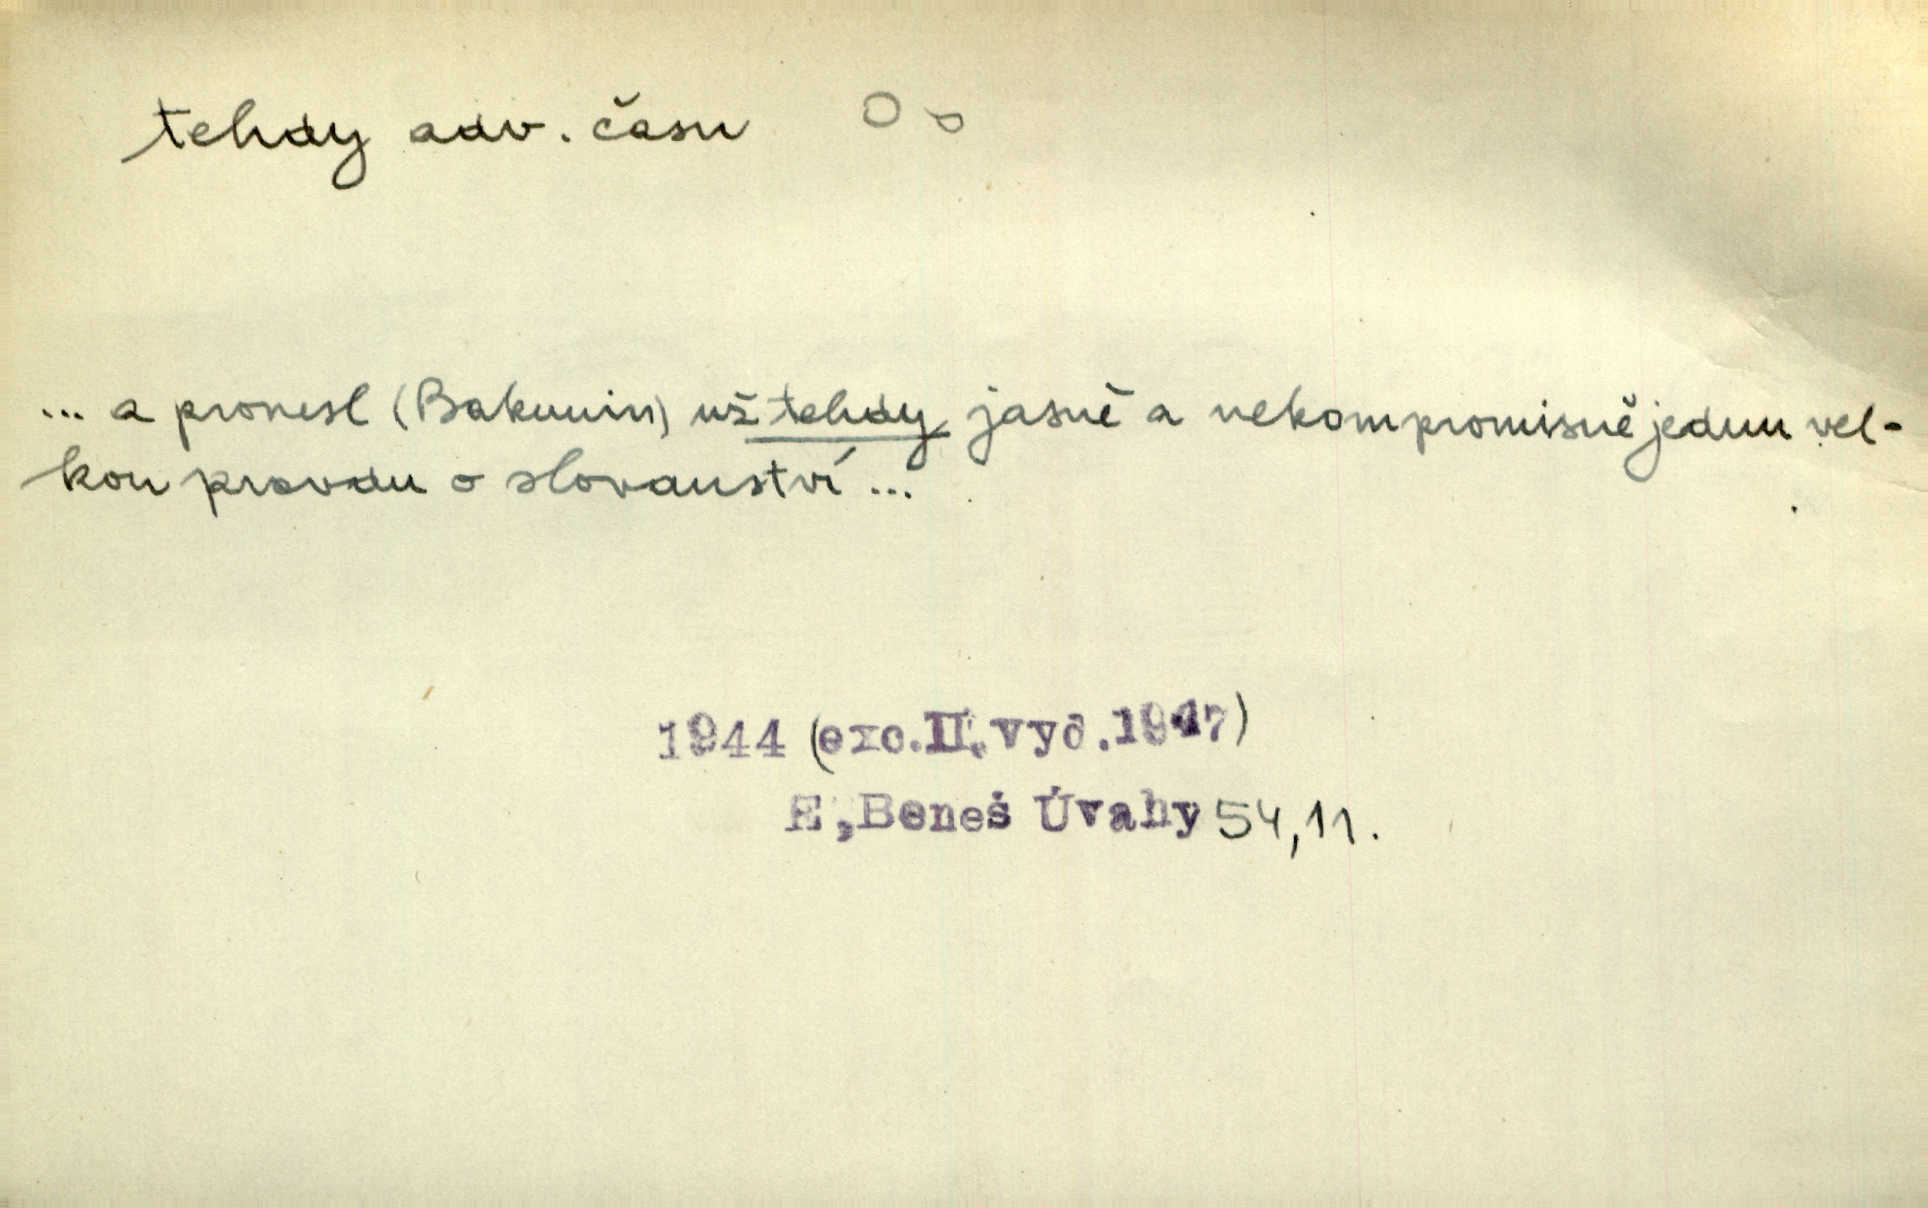 tehdy adv. času
... a pronesl (Bakunin) už tehdy jasně a nekompromisně jednu vel-
kou pravdu o slovanství ...
1944 (exc. II. vyd. 1947)
E. Beneš Úvahy 54, 11.